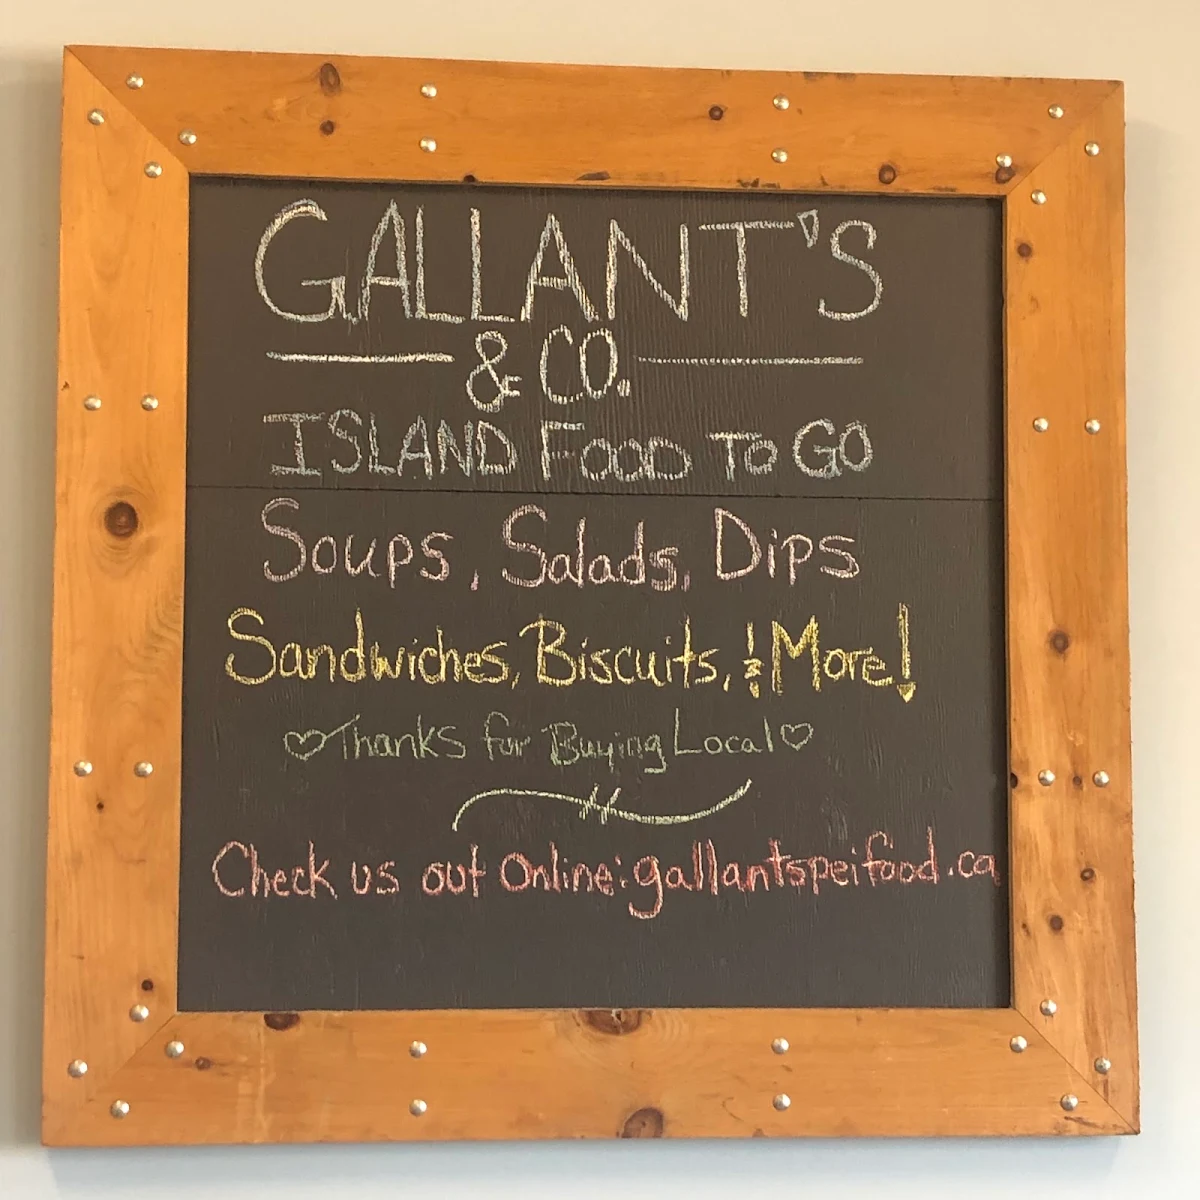 GALLANT'S
& CO.
ISLAND FOOD TO GO
Soups, Salads, Dips
Sandwiches, Biscuits, & More!
♡Thanks for Buying Local♡
Check us out Online: gallantspeifood.ca